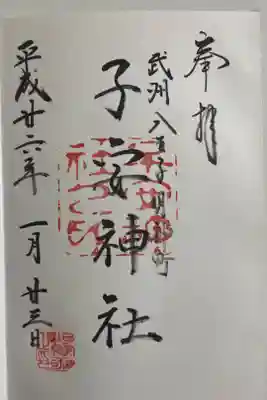 奉拝
武州八王子明神町
子安神社
平成廿六年一月廿三日